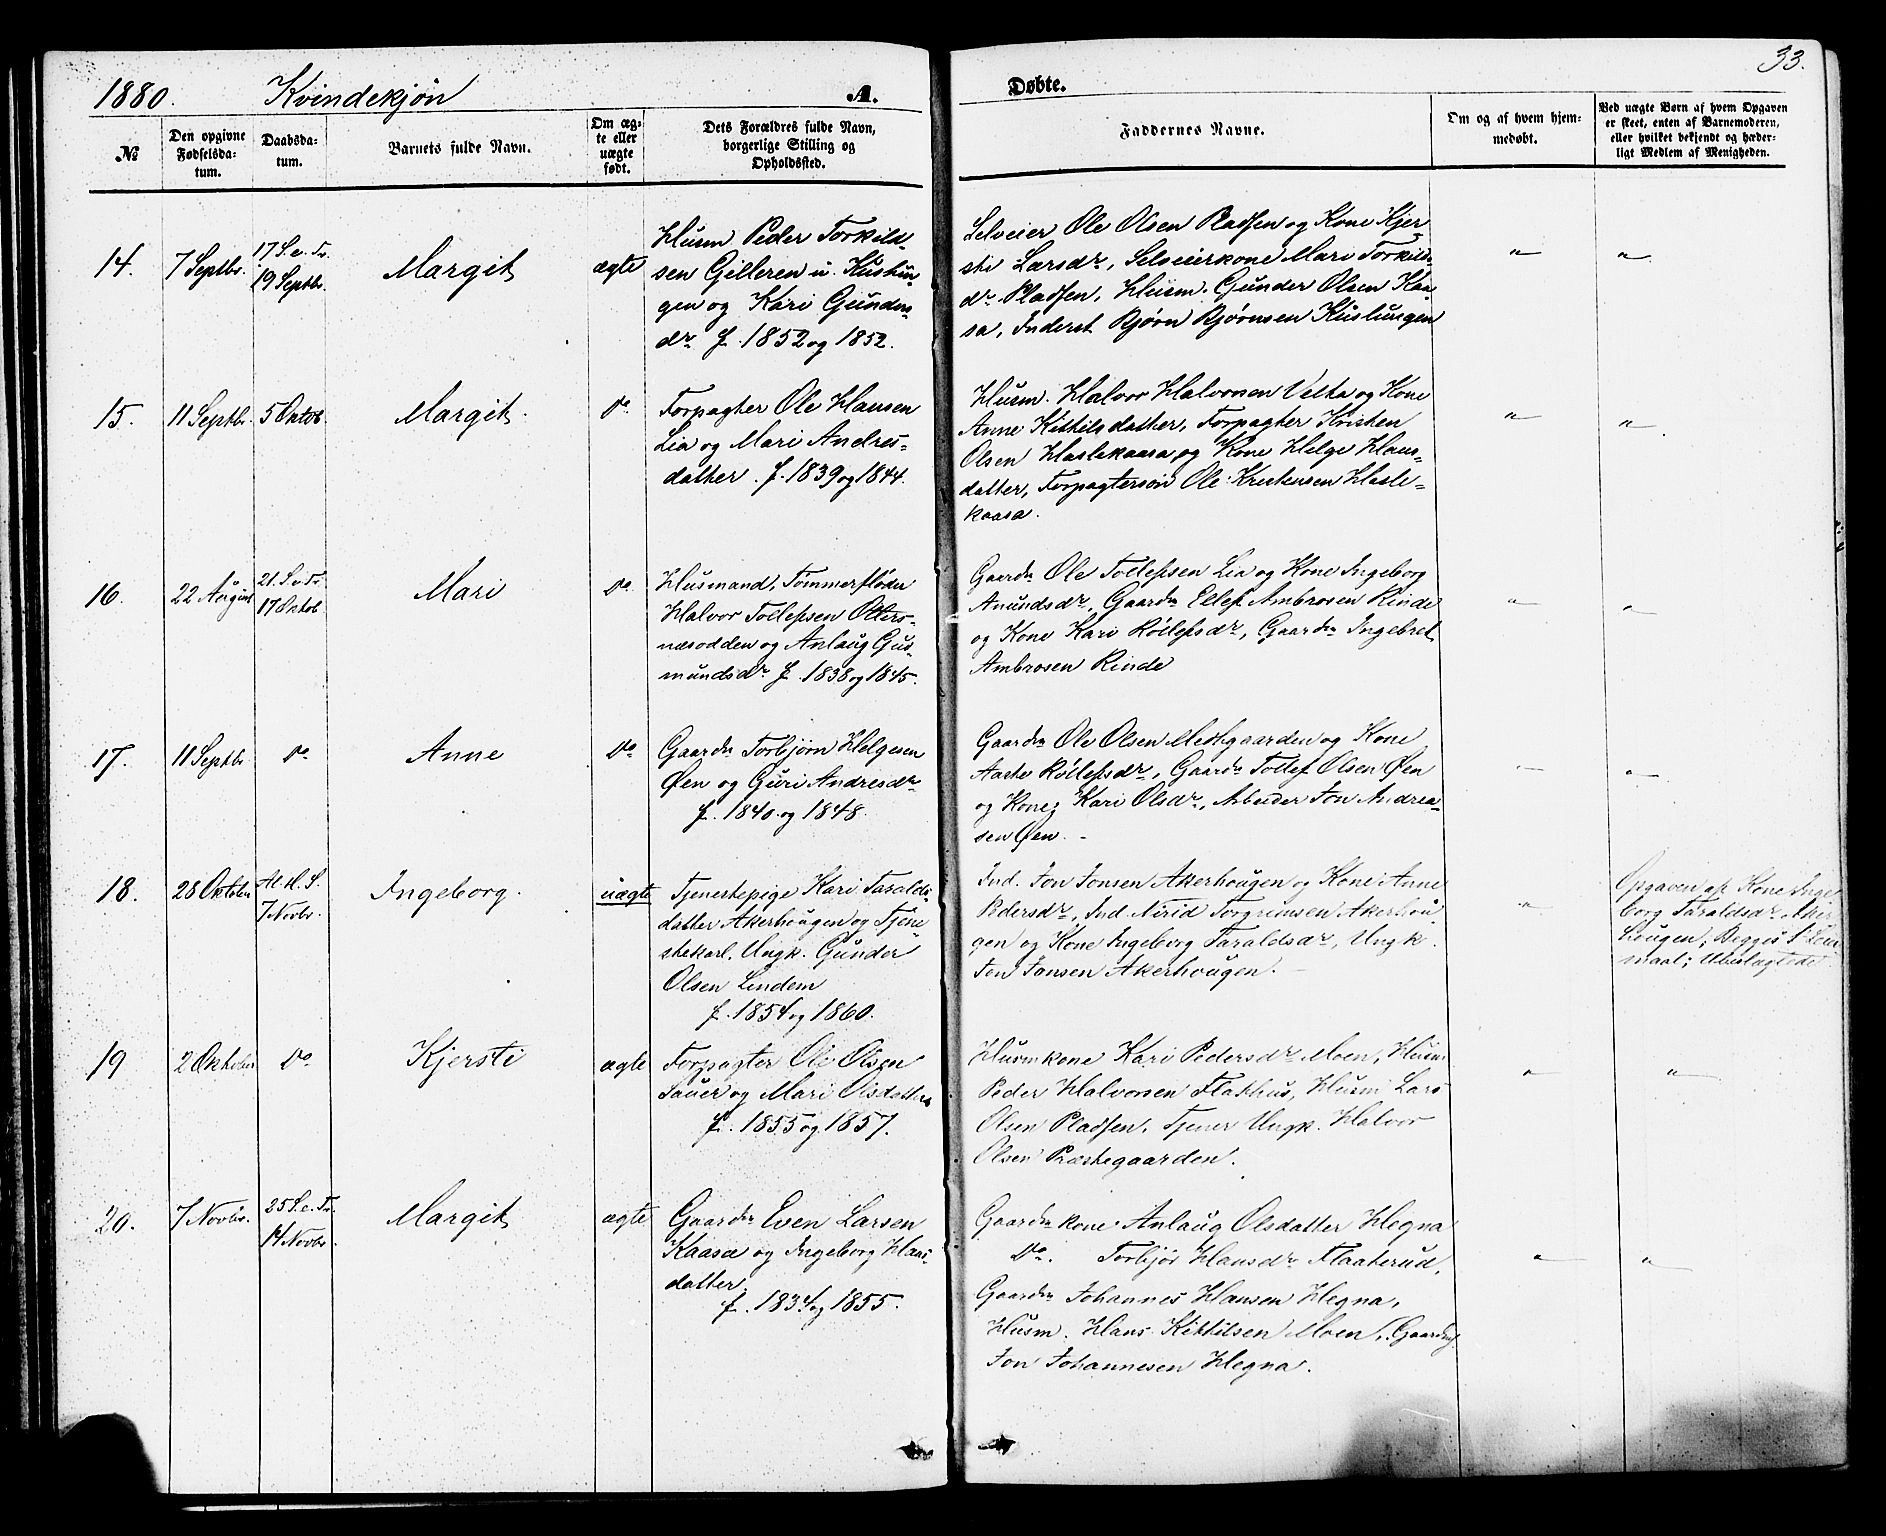 33.
1880. Kvindekjøn A. Døbte.
№
Den opgivne Fødselsda-tum.
Daabsda-tum.
Barnets fulde Navn.
Om æg-te eller uægte født.
Dets Forældres fulde Navn, borgerlige Stilling og Opholdssted.
Faddernes Navne.
Om og af hvem hjem-medøbt.
Ved uægte Børn af hvem Opgaven er skeet, enten af Barnemoderen, eller hvilket bekjendt og hæder-ligt Medlem af Menigheden.
14. 7 Septbr. 17 S. e. Tr. 19 Septbr. Margit ægte
Husm. Peder Torkild-
sen Gilleren u.
gen og Kari Gunders-
dr f. 1852 og 1852.
Selveier Ole Olsen Pladsen og Kone Kjer-
sti Larsdr, Selveierkone Mari Torkilds-
dr Pladsen, Husm. Gunder Olsen Kaa-
sa, Inderst Bjørn Bjørnsen
" "
15. 11 Septbr. 5 Oktob. Margit. do
Forpagter Ole Hansen
Lia og Mari Andres-
datter. f. 1839 og 1844.
Husm. Halvor Halvorsen Velta og Kone
Anne Kittilsdatter, Forpagter Kristen
Olsen Haslekaasa og Kone Helge Hans-
datter, Forpagtersøn Ole Kristensen Hasle-
kaasa.
" "
16. 22 August 21. S. e. Tr. 17 Oktob. Mari do
Husmand, Tømmerfløder
Halvor Tollefsen Oters-
næsodden og Anlaug Gus-
mundsdr f. 1838 og 1845.
Gaardm Ole Tollefsen Lia og Kone Ingeborg
Amundsdr, Gaardm Ellef Ambrosen Rinde
og Kone Kari Rollefsdr, Gaardm Ingebret
Ambrosen Rinde
" "
17. 11 Septbr do Anne do
Gaardm Torbjørn Helgesen
Øen og Guri Andresdr
f. 1840 og 1848.
Gaardm Ole Olsen Mestgaarden og Kone
Aaste Rollefsdr, Gaardm Tollef Olsen Øen
og Kone Kari Olsdr, Arbeider Jon Andrea-
sen Øen.
" "
18. 28 Oktober Al. H. S. 7 Novbr. Ingeborg. uægte
Tjenestepige Kari Taralds-
datter Akerhaugen og Tjene-
stekarl, Ungk. Gunder
Olsen Lindem
f. 1854 og 1860.
Ind. Jon Jonsen Akerhougen og Kone Anne
Pedersdr, Ind Nirid Torgrimsen Akerhou-
gen og Kone Ingeborg Taraldsdr, Ungk.
Jon Jonsen Akerhougen.
"
Opgaven af Kone Inge
borg Taraldsdr Aker
hougen; Begges 1. Leier
maal; Ubeslægtede
19 2 Oktober do Kjersti ægte
Forpagter Ole Olsen
Sauer og Mari Olsdatter
f. 1855 og 1857.
Husmkone Kari Pedersdr Moen, Husm
Peder Halvorsen Flathus, Husm Lars
Olsen Pladsen, Tjener Ungk. Halvor
Olsen Præstegaarden.
" "
20. 7 Novbr. 25 S. e. Tr. 14 Novbr. Margit ægte
Gaardm Even Larsen
Kaasa og Ingeborg Hans-
datter.
f. 1834 og 1855.
Gaardmkone Anlaug Olsdatter Hegna
do. Torbjør Hansdr Flaaterud,
Gaardm Johannes Hansen Hegna,
Husm. Hans Kittilsen Moen,
Jon Johannesen Hegna.
" "